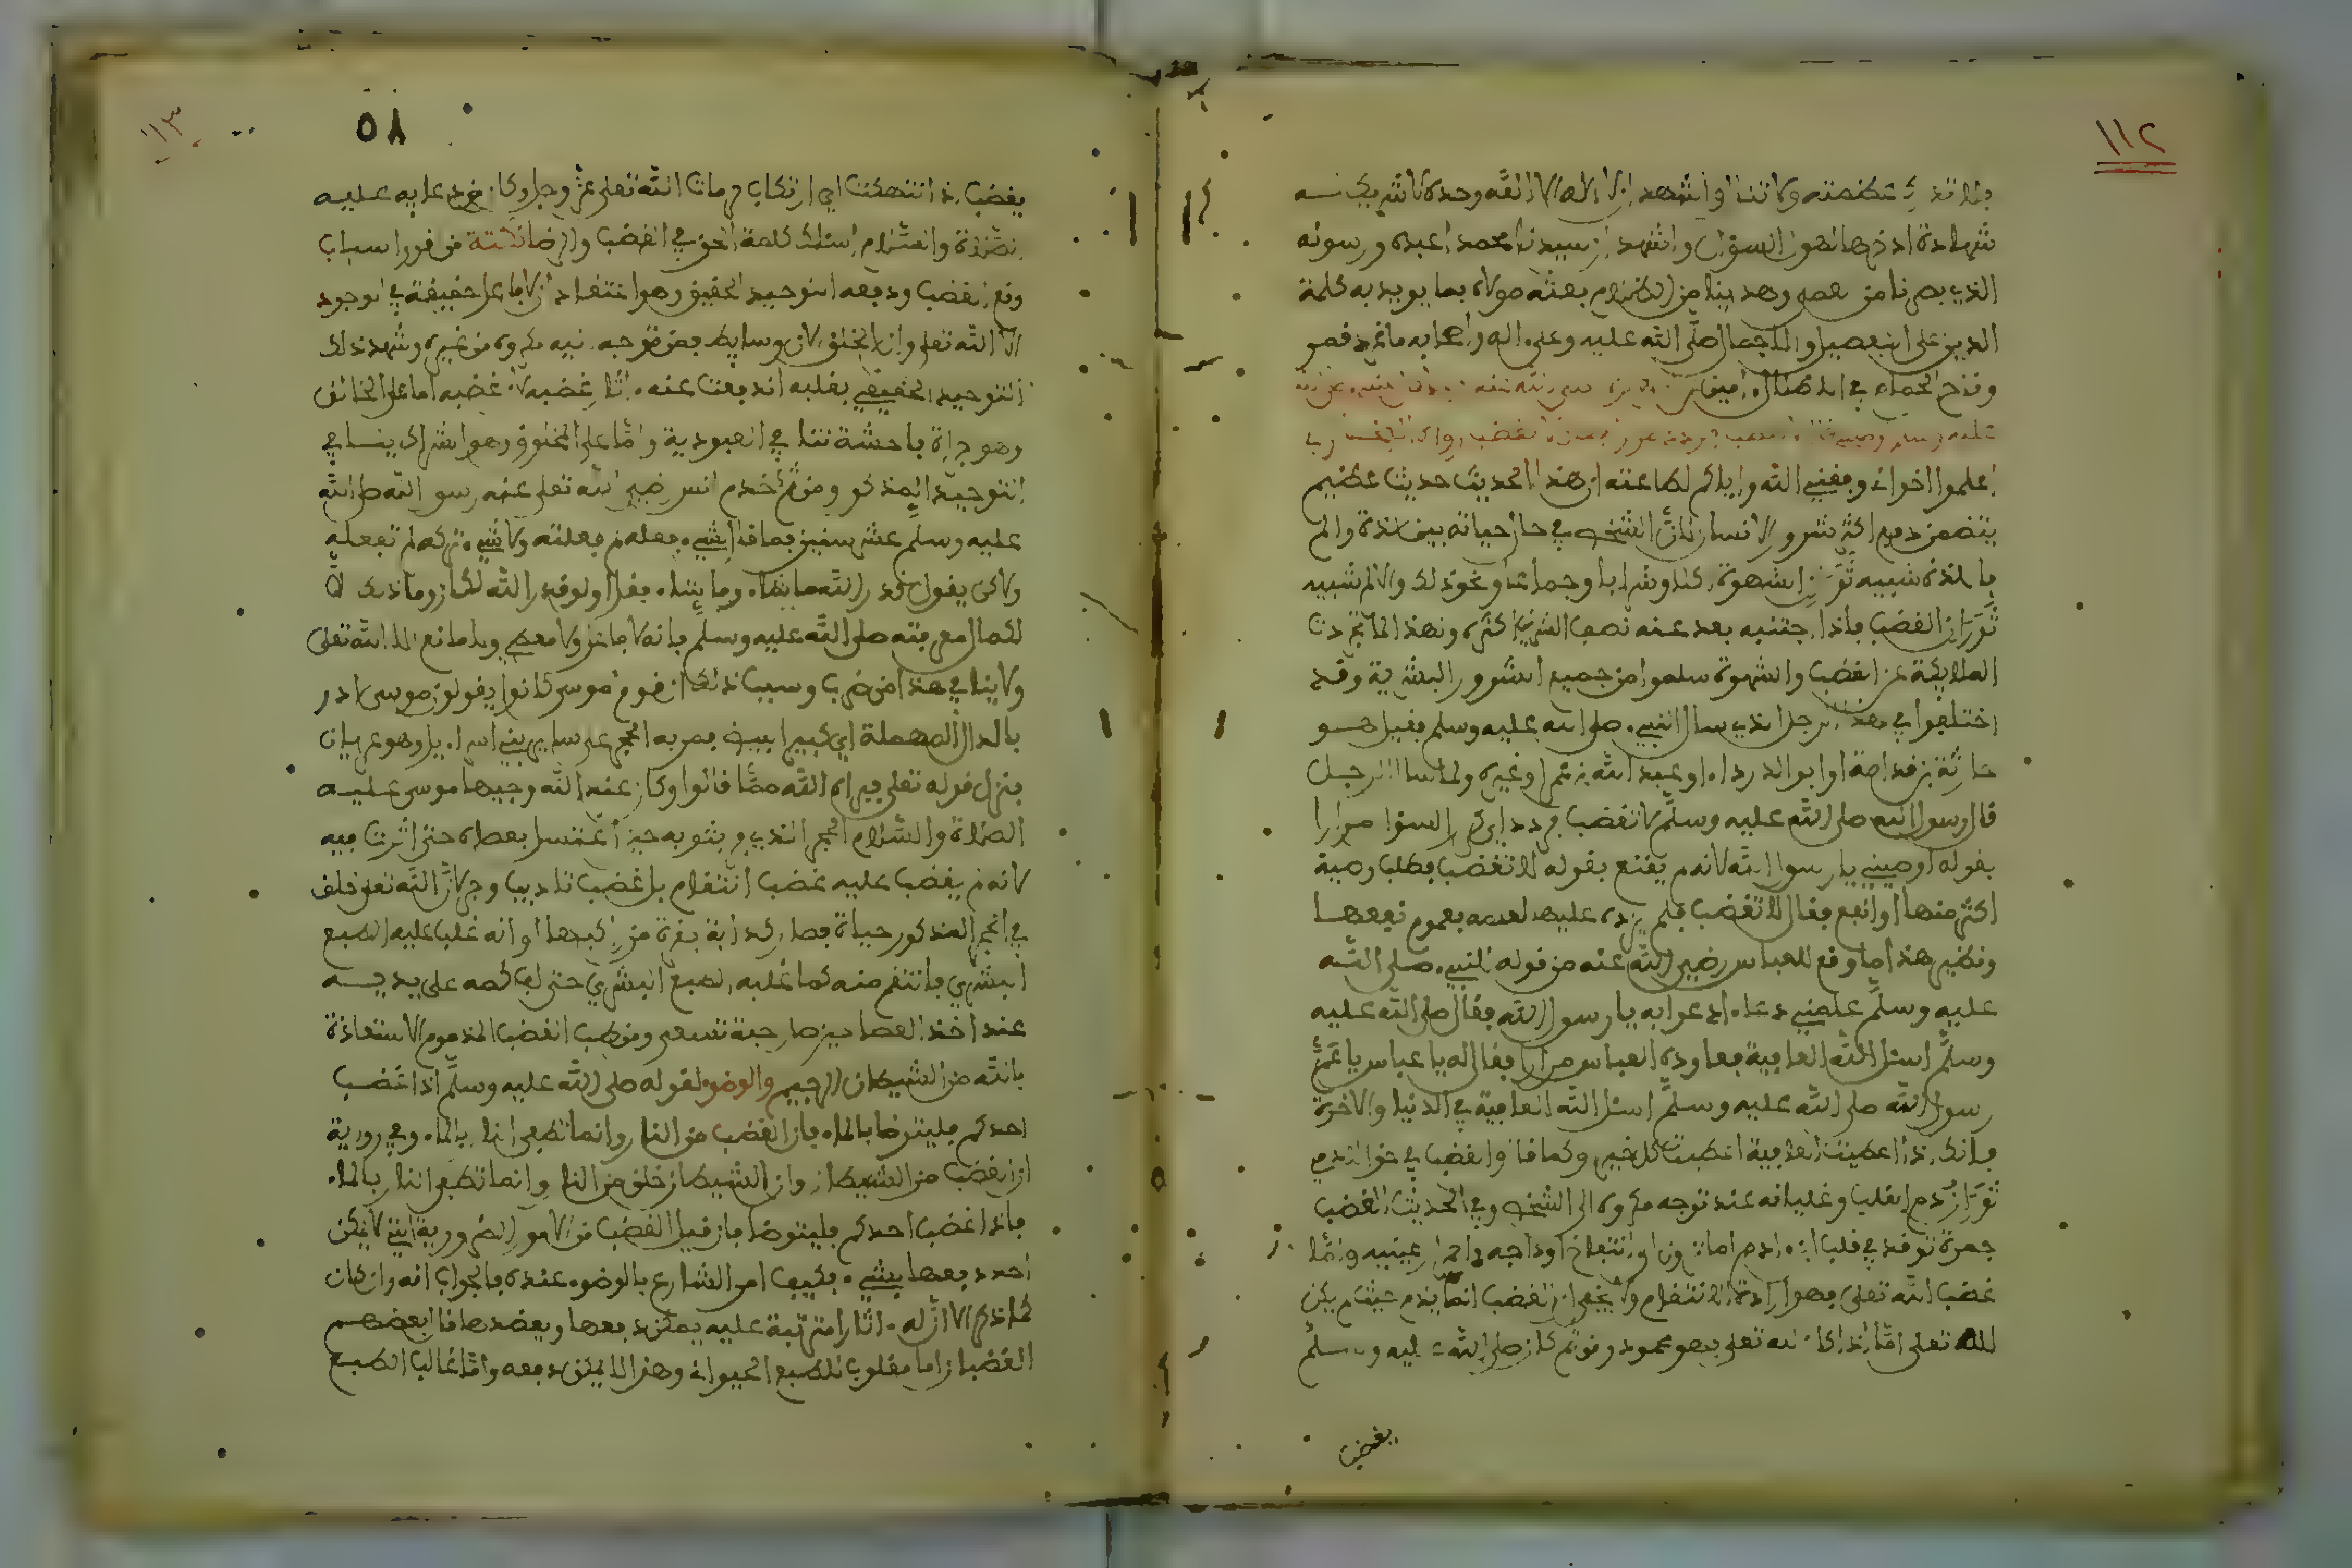 ١١٢
شهادة ادخرها لهول السؤال واشهد ان سيدنا محمدا عبده ورسوله
الذي بصرنا من العمى وهدينا من الظلام بعثه مولاه بما يويد به كلمة
الدين على التفصيل والاجمال صلى الله عليه وعلى اله واصحابه ما غرد قمرى
وناح الحمام في الاطلال امين
اعلموا اخواني وفقني الله واياكم لطاعته ان هذا الحديث حديث عظيم
يتضمن دفع اكثر شرور الانسان لان الشخص في حال حياته بين لذة والم
فاللذة سببه ثوران الشهوة اكلا وشربا وجماعا ونحو ذلك والالم سببه
ثوران الغضب فاذا اجتنبه بعد عنه نصف الشر بل اكثره ولهذا لما تجردت
الملايكة عن الغضب والشهوة سلموا من جميع الشرور البشرية وقد
اختلفوا في هذا الرجل الذي سال النبي صلى الله عليه وسلم فقيل هو
حارثة بن قدامة او ابو الدرداء او عبد الله بن عمر او غيره ولما سال الرجل
قال رسول الله صلى الله عليه وسلم لا تغضب فردد اي كرر السؤال مرارا
بقوله اوصيني يا رسول الله لانه لم يقنع بقوله لا تغضب فطلب وصية
اكثر منها او انفع فقال لا تغضب فلم يزده عليها لعلمه بعموم نفعها
ونظير هذا ما وقع للعباس رضي الله عنه من قوله للنبي صلى الله
عليه وسلم علمني دعاء ادعوا به يا رسول الله فقال صلى الله عليه
وسلم اسئل الله العافية فعاوده العباس مرارا فقال له يا عباس يا عم
رسول الله صلى الله عليه وسلم اسئل الله العافية في الدنيا والاخرة
فانك اذا اعطيت العافية اعطيت كل خير وكما قال والغضب في حق الادمي
ثوران دم القلب وغليانه عند توجه مكروه الى الشخص وفي الحديث الغضب
جمرة توقد في قلب ابن ادم اما ترون الى انتفاخ اوداجه واحمرار عينيه واما
غضب الله تعلى فهو ارادة الانتقام ولا يخفى ان الغضب انما يذم حيث لم يكن
لله تعلى اما اذا كان لله تعلى فهو محمود ومن ثم كان صلى الله عليه وسلم
يغضب
١١٣
٥٨
يغضب اذا انتهكت اي ارتكاب حرمات الله تعلى عز وجل وكان من دعايه عليه
الصلاة والسلام اسئلك كلمة الحق في الغضب والرضا ثالثة من فور اسباب
دفع الغضب ودفعه التوحيد الحقيق وهو اعتقاد ان لا فاعل حقيقة في الوجود
الا الله تعلى وان الخلق الات ووسايط فمن توجه اليه مكروه من غيره وشهد ذلك
التوحيد الحقيقي بقلبه اندفعت عنه اثار غضبه لان غضبه اما على الخالق
وهو جراة فاحشة تنافي العبودية واما على المخلوق وهو اشراك ينافي
التوحيد المذكور ومن ثم خدم انس رضي الله تعلى عنه رسول الله صلى الله
عليه وسلم عشر سنين فما قال لشيء فعله لم فعلته ولا لشيء تركه لم تفعله
ولاكن يقول قدر الله ما شاء وما شاء فعل ولو قدر الله لكان وما ذلك الا
لكمال معرفته صلى الله عليه وسلم بانه لا فاعل ولا معطي ولا مانع الا الله تعلى
ولا ينافي هذا من ضرب وسبب ذلك ان قوم موسى كانوا يقولون موسى ادر
بالدال المهملة اي كبير البيض فمر به الحجر على ساير بني اسراءيل وهو عريان
فنزل قوله تعلى فبراه الله مما قالوا وكان عند الله وجيها موسى عليه
الصلاة والسلام الحجر الذي فر بثوبه حين اغتسل بعصاه حتى اثرت فيه
لانه لم يغضب عليه غضب انتقام بل غضب تاديب وجر لان الله تعلى خلف
في الحجر المذكور حياة فصار كدابة نفرة من راكبها او انه غلب عليه الطبع
البشري فانتقم منه كما غلبه الطبع البشري حتى لف كمه على يديه
عند اخذ العصا حين صارت حية تسعى ومن طب الغضب المذموم الاستعاذة
بالله من الشيطان الرجيم والوضوء لقوله صلى الله عليه وسلم اذا غضب
احدكم فليتوضا بالماء فان الغضب من النار وانما تطفى النار بالماء وفي رورية
ان الغضب من الشيطان وان الشيطان خلق من النار وانما تطفى النار بالماء
فاذا غضب احدكم فليتوضا فان قيل الغضب من الامور الضرورية التي لا يمكن
احد دفعها بشيء فكيف امر الشارع بالوضوء عنده فالجواب انه وان كان
كما ذكر الا ان له اثارا مترتبة عليه يمكن دفعها ويعضدها قال بعضهم
الغضبان اما مغلوب للطبع الحيواني وهذا لا يمكن دفعه واما غالب الطبع